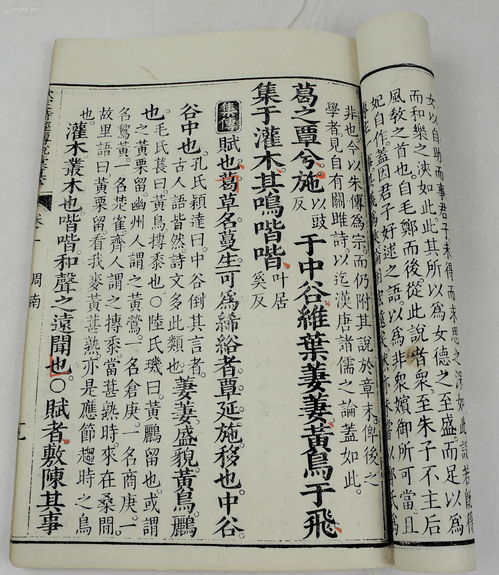 女以自助而事君子未得而未思之深如此
而和樂之浹如此此其所以為女德之至盛而足以為
風敎之首也自毛鄭而後從此說者衆至朱子不主后
妃自作蓋因君子好逑之語以為非衆嬪御所可當且
非也今以朱傳為宗而仍附其說於章末俾後之
學者見自有關雎詩以迄漢唐諸儒之論蓋如此
葛之覃兮施以豉反于中谷維葉萋萋黃鳥于飛
集于灌木其鳴喈喈叶居奚反
集傳賦也葛草名蔓生可為絺綌者覃延施移也中谷
谷中也孔氏穎達曰中谷倒其言者古人語皆然詩文多此類也萋萋盛貌黃鳥鸝
也毛氏萇曰黃鳥搏黍也陸氏璣曰黃鸝留也或謂
之黃栗留幽州人謂之黃鶯一名倉庚一名商庚一
名鵹黃一名楚雀齊人謂之搏黍當葚熟時來在桑間
故里語曰黃栗留看我麥黃葚熟亦是應節趨時之鳥
也灌木叢木也喈喈和聲之遠聞也○賦者敷陳其事
周南